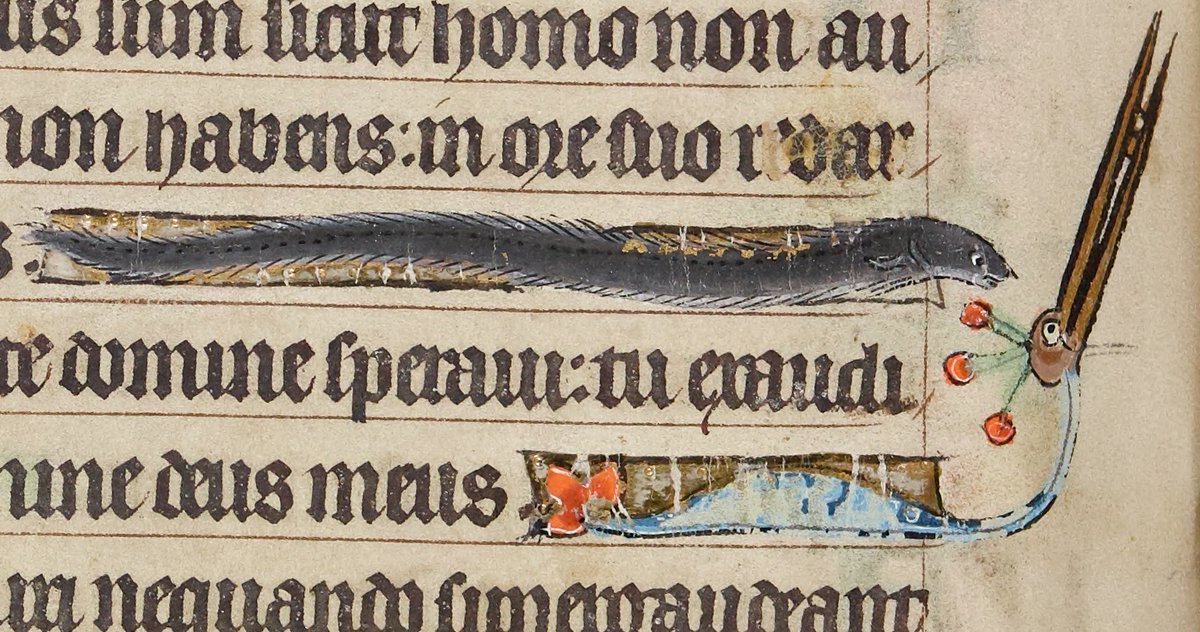 us sum sicut homo non au
non habens: in ore suo redar
s.
te domine speraui: tu exaudi
mine deus meus
xi nequando supergaudeant